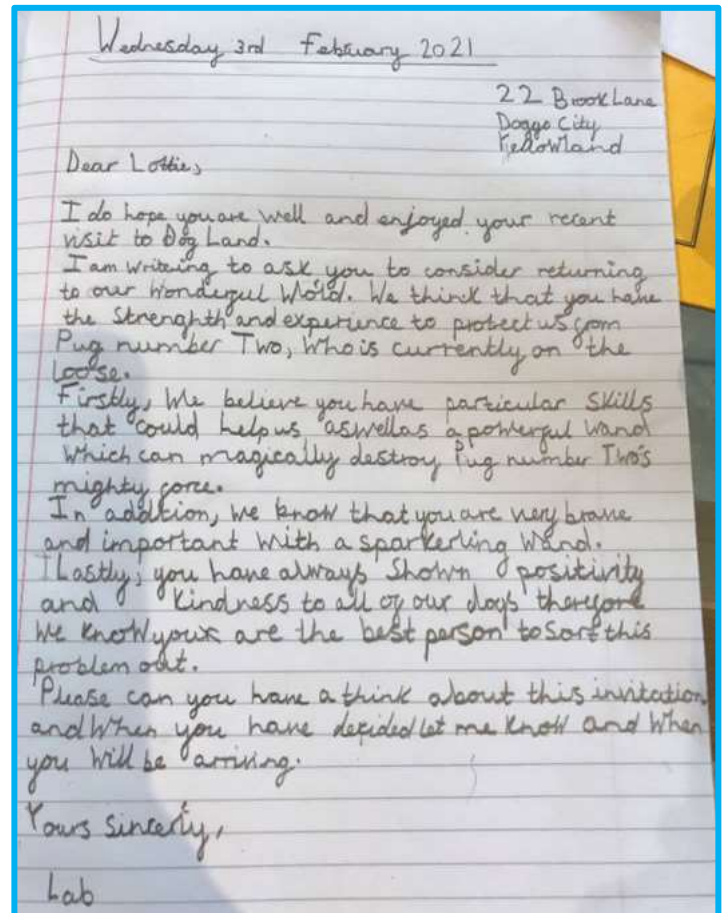 Wednesday 3rd February 2021
22 Brook Lane
Doggo City
Fellowland
Dear Lottie,
I do hope you are well and enjoyed your recent
visit to Dog Land.
I am writeing to ask you to consider returning
to our wonderful World. We think that you have
the Strenghth and experience to protect us from
Pug number Two, Who is currently on the
Loose.
Firstly, We believe you have particular Skills
that could help us aswellas a powerful wand
which can magically destroy Pug number Two's
mighty force.
In addtion, we know that you are very brave
and important with a sparkerling wand.
Lastly, you have always Shown positivity
and kindness to all of our dogs therefore
We know your are the best person to sort this
problem out.
Please can you have a think about this invitation
and When you have decided let me know and When
you will be arriving.
Yours Sincerly,
Lab